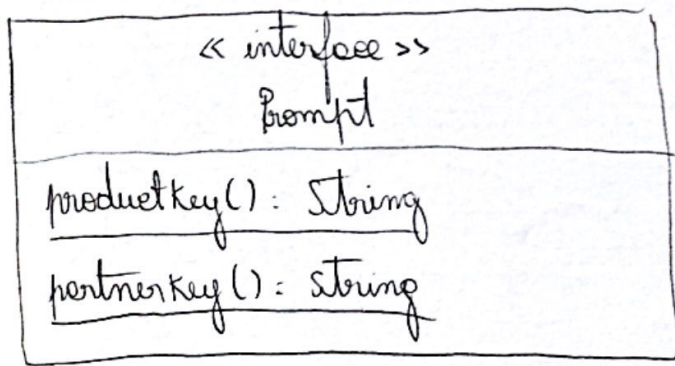 << interface >>
Prompt
productKey() : String
partnerKey() : String